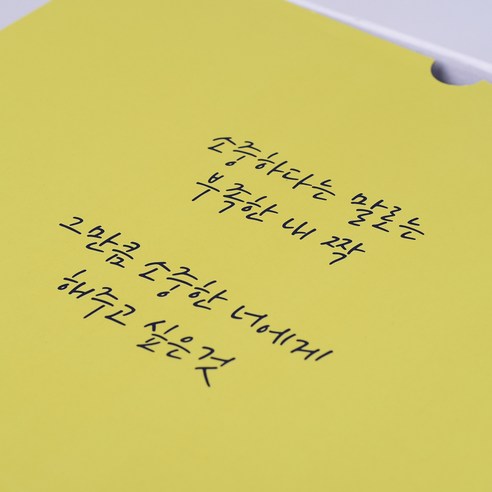 소중하다는 말로는
부족한 내 짝
그만큼 소중한 너에게
해주고 싶은것